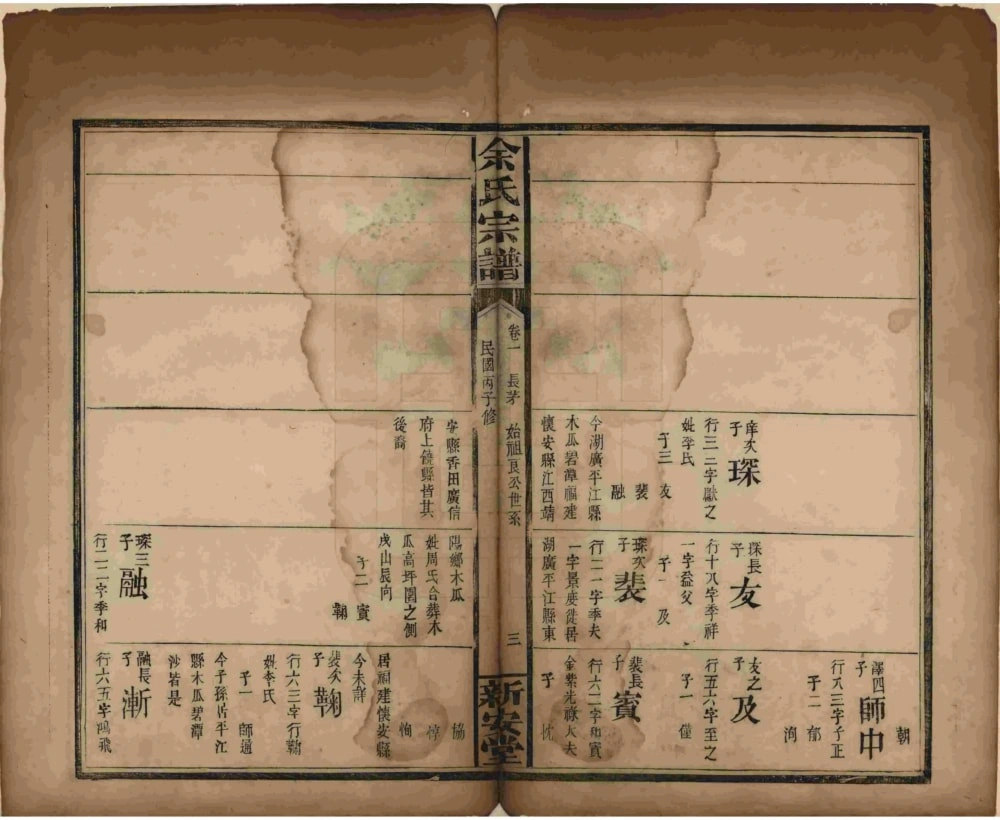 琛
行三三字獻之
妣李氏
子三
友
裴
融
今湖廣平江縣
木瓜碧潭福建
懷安縣江西靖
琛長
子
友
行十八字季祥
一字益父
子一
及
琛次
子
裴
行二一字季夫
一字景度徙居
湖廣平江縣東
朝
澤四
子
師中
行八三字子正
子二
郁
洵
友之
子
及
行五六字至之
子一
僅
裴長
子
賓
行六二字和賓
金紫光祿大夫
子
忱
余氏宗譜
卷一
長茅
始祖良公世系
三
民國丙子修
新安堂
安縣香田廣信
府上饒縣皆其
後裔
陽鄉木瓜
妣周氏合葬木
瓜高坪園之側
戌山辰向
子二
賓
鞠
琛三
子
融
行二二字季和
協
惇
恂
居福建懷安縣
今未詳
裴次
子
鞠
行六三字行勒
妣李氏
子一
師適
今子孫居平江
縣木瓜碧潭
沙岩是
融長
子
漸
行六五字鴻飛